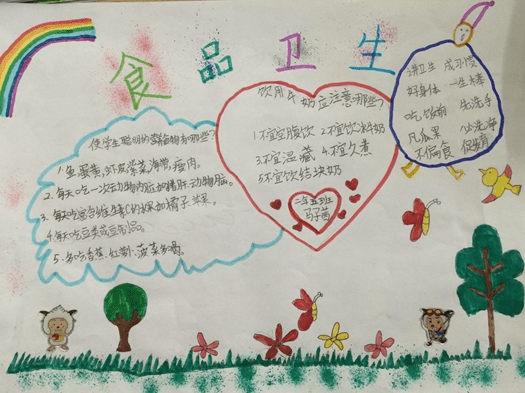 食品卫生
使学生聪明的食物有哪些?
1.鱼蛋黄,虾皮紫菜,海带,瘦肉。
2.每天吃一次动物内脏如猪肝动物脑。
3.每天吃富含维生素C的果如橘子 苹果。
4.每天吃豆类或豆制品。
5.多吃香蕉、红糖、菠菜
饮用牛奶应注意哪些?
1.不宜空腹饮 2.不宜饮冰牛奶
3.不宜温藏 4.不宜久煮
5.不宜饮结块奶
二年五班
讲卫生 成习惯
好身体 一生棒
吃饭前 先洗手
凡瓜果 必洗净
不偏食 保健育